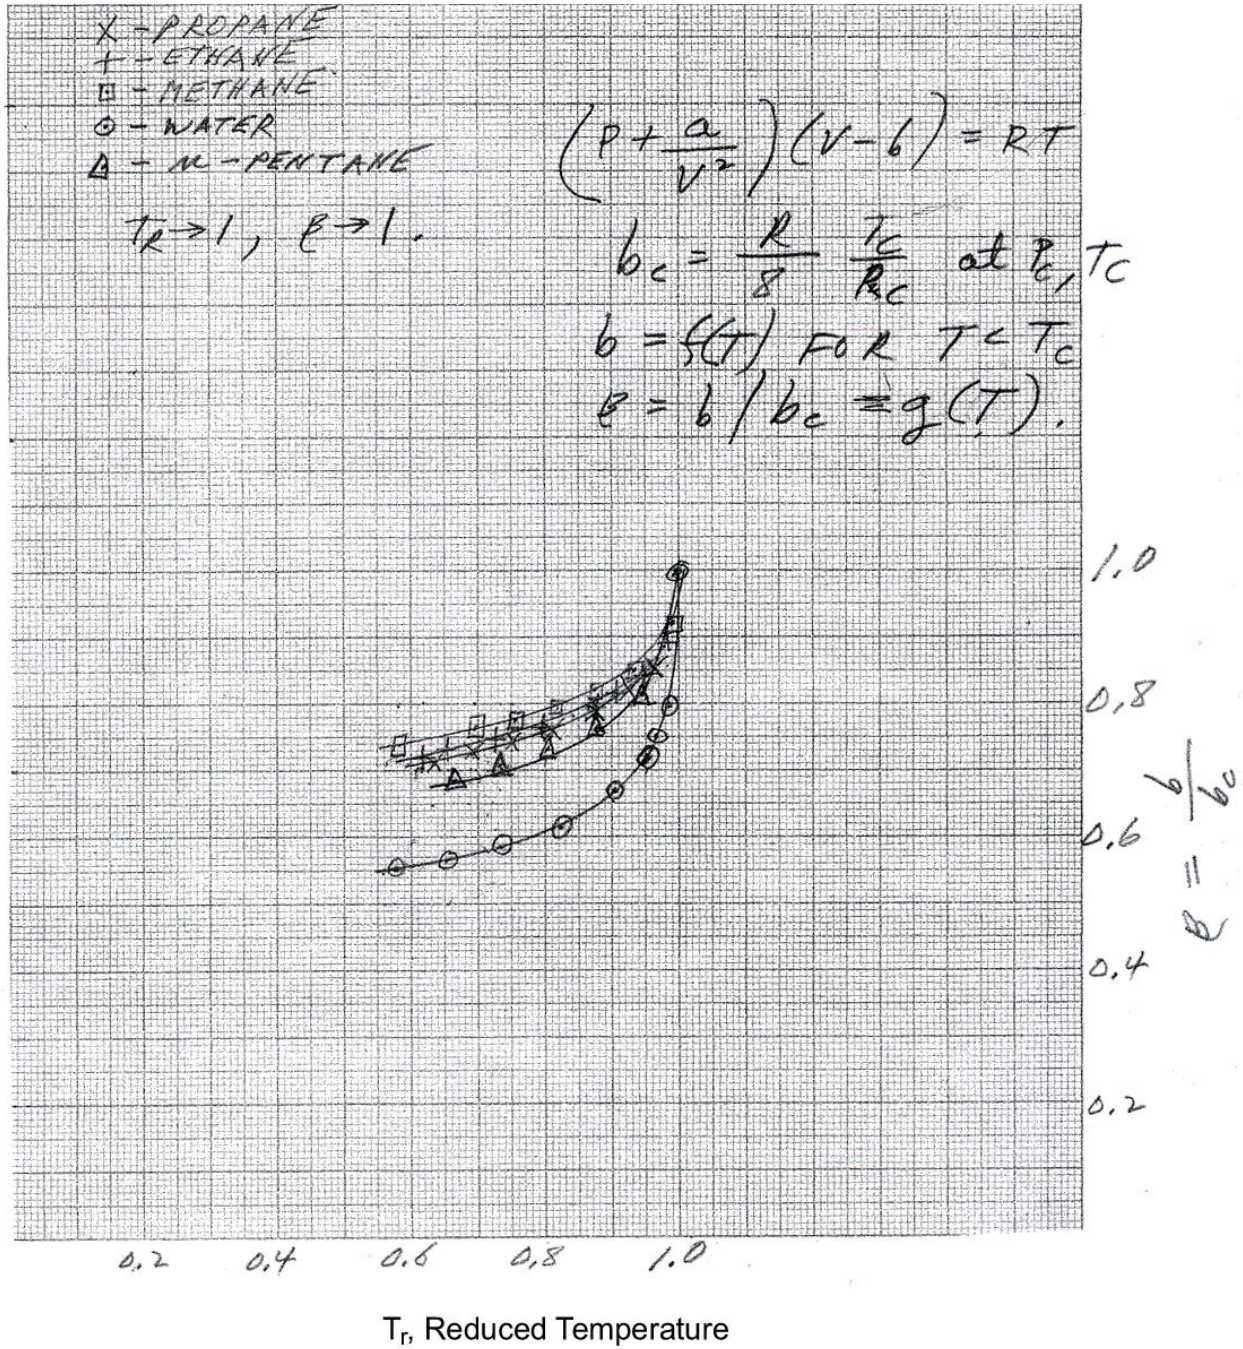 X - PROPANE
+ - ETHANE
□ - METHANE
⊙ - WATER
△ - n - PENTANE
T_R → 1, β → 1.
(P + a/V²)(V - b) = RT
b_c = R/8 T_c/P_c at P_c, T_c
b = f(T) FOR T < T_c
β = b / b_c = g(T).
1.0
0,8
0.6
0.4
0.2
β = b/b_c
0.2 0.4 0.6 0,8 1.0
T_r, Reduced Temperature